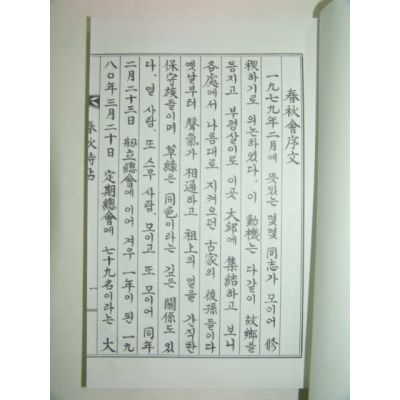 春秋會序文
一九七九年二月에 뜻있는 몇몇 同志가 모이어 修
稧하기로 의논하였다. 이 動機는 다같이 故鄕을
등지고 부평살이로 이곳 大邱에 集結하고 보니
各處에서 나름대로 지켜오던 古家의 後孫들이다
옛날부터 聲氣가 相通하고 祖上의 얼을 간직한
保守族들이며 草綠은 同色이라는 깊은 關係도 있
다. 열 사람, 또 스무 사람, 모이고 또 모이어 同年
二月二十三日 創立總會에 이어 겨우 一年이 된 一九
八○年三月二十日 定期總會에 七十九名이라는 大
春秋詩帖
一